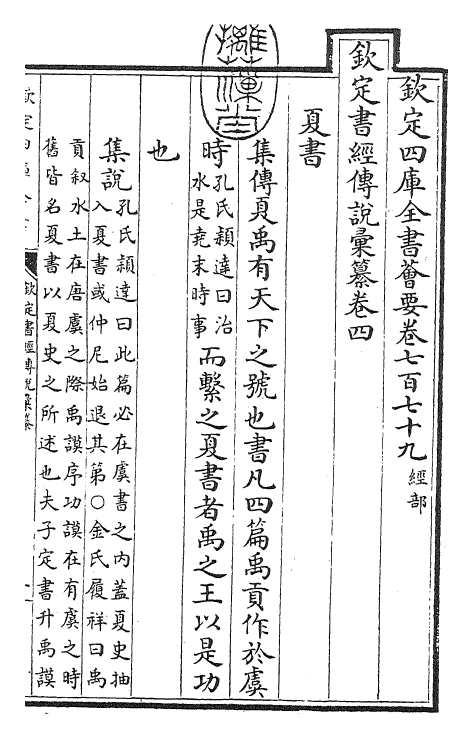 欽定四庫全書薈要卷七百七十九 經部
欽定書經傳說彙纂卷四
摛藻堂
夏書
集傳夏禹有天下之號也書凡四篇禹貢作於虞
時 孔氏穎達曰治
水是堯末時事
而繫之夏書者禹之王以是功
也
集說 孔氏穎達曰此篇必在虞書之內蓋夏史抽
入夏書或仲尼始退其第○金氏履祥曰禹
貢叙水土在唐虞之際禹謨序功謨在有虞之時
舊皆名夏書以夏史之所述也夫子定書升禹謨
欽定書經傳說彙纂